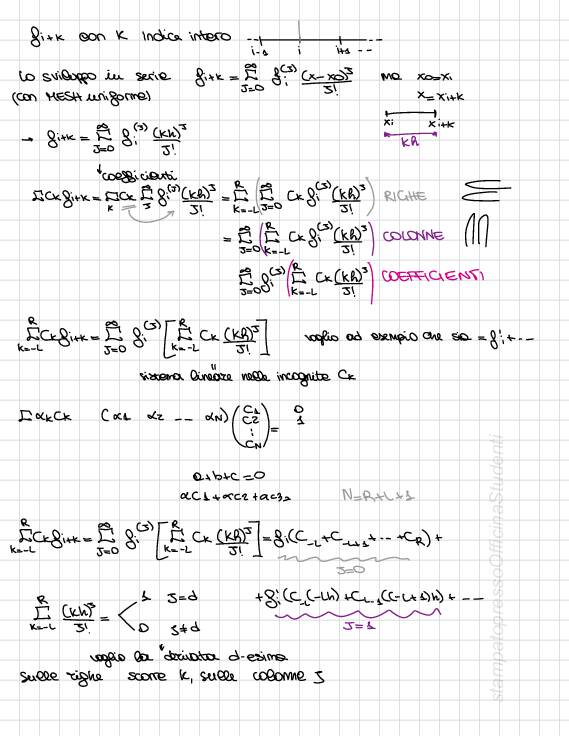 fi+k con k indice intero
i-1 i i+1
lo sviluppo in serie fi+k = ∞ΣJ=0 fi^(J) (x-x0)^J/J! ma x0=xi
(con MESH uniforme) x=xi+k
xi xi+k
kh
→ fi+k = ∞ΣJ=0 fi^(J) (kh)^J/J!
coefficienti
ΣCk fi+k = Σk Ck ∞ΣJ fi^(J) (kh)^J/J! = RΣk=-L (∞ΣJ=0 Ck fi^(J) (kh)^J/J!) RIGHE
= ∞ΣJ=0 (RΣk=-L Ck fi^(J) (kh)^J/J!) COLONNE
∞ΣJ=0 fi^(J) (RΣk=-L Ck (kh)^J/J!) COEFFICIENTI
RΣk=-L Ck fi+k = ∞ΣJ=0 fi^(J) [RΣk=-L Ck (kh)^J/J!] voglio ad esempio che sia = f'i + ...
sistema lineare nelle incognite Ck
Σ αk Ck (α1 α2 -- αN) (C1 C2 ⋮ CN) = 0 1
a+b+c=0
αC1+αC2+αC3=
N=R+L+1
RΣk=-L Ck fi+k = ∞ΣJ=0 fi^(J) [RΣk=-L Ck (kh)^J/J!] = fi(C-L+C-L+1+...+CR)+
J=0
RΣk=-L (kh)^J/J! = 1 J=d
0 J≠d
+f'i(C-L(-Lh)+CL-1((-L+1)h)+ ---
J=1
voglio la derivata d-esima
sulle righe scorre k, sulle colonne J
stampatopressoOfficinaStudenti